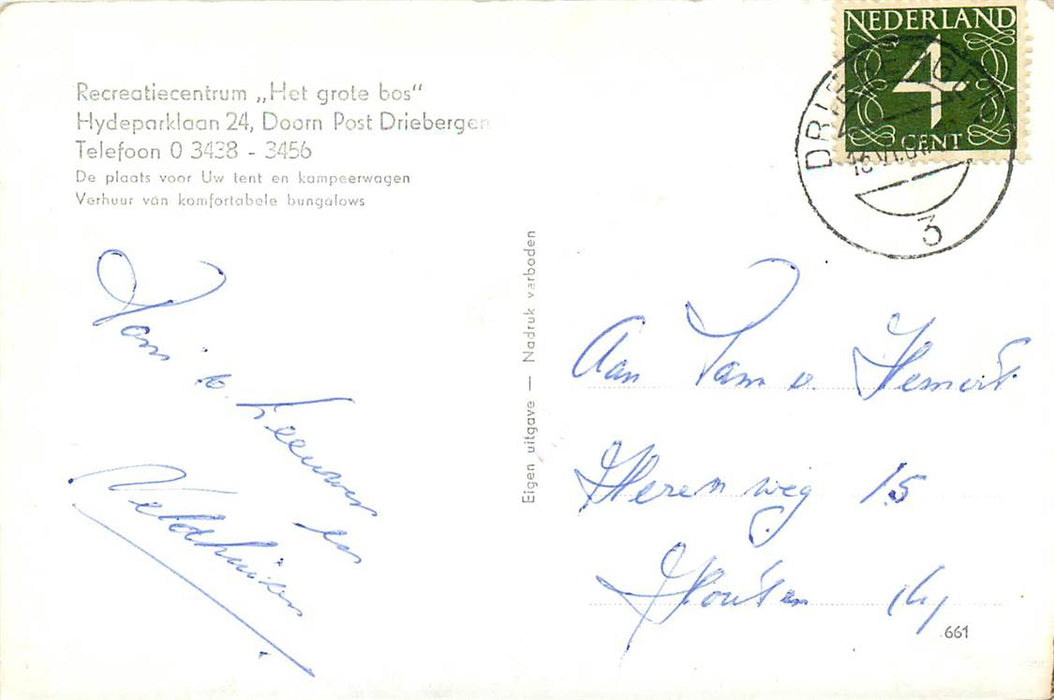 Recreatiecentrum „Het grote bos"
Hydeparklaan 24, Doorn Post Driebergen
Telefoon 0 3438 - 3456
De plaats voor Uw tent en kampeerwagen
Verhuur van komfortabele bungalows
NEDERLAND
4
CENT
DRIEBERGEN
3
Fam. v. Leeuwen en
Veldhuizen
Eigen uitgave — Nadruk verboden
Aan Fam v. Hemert
Herenweg 15
Houten
661